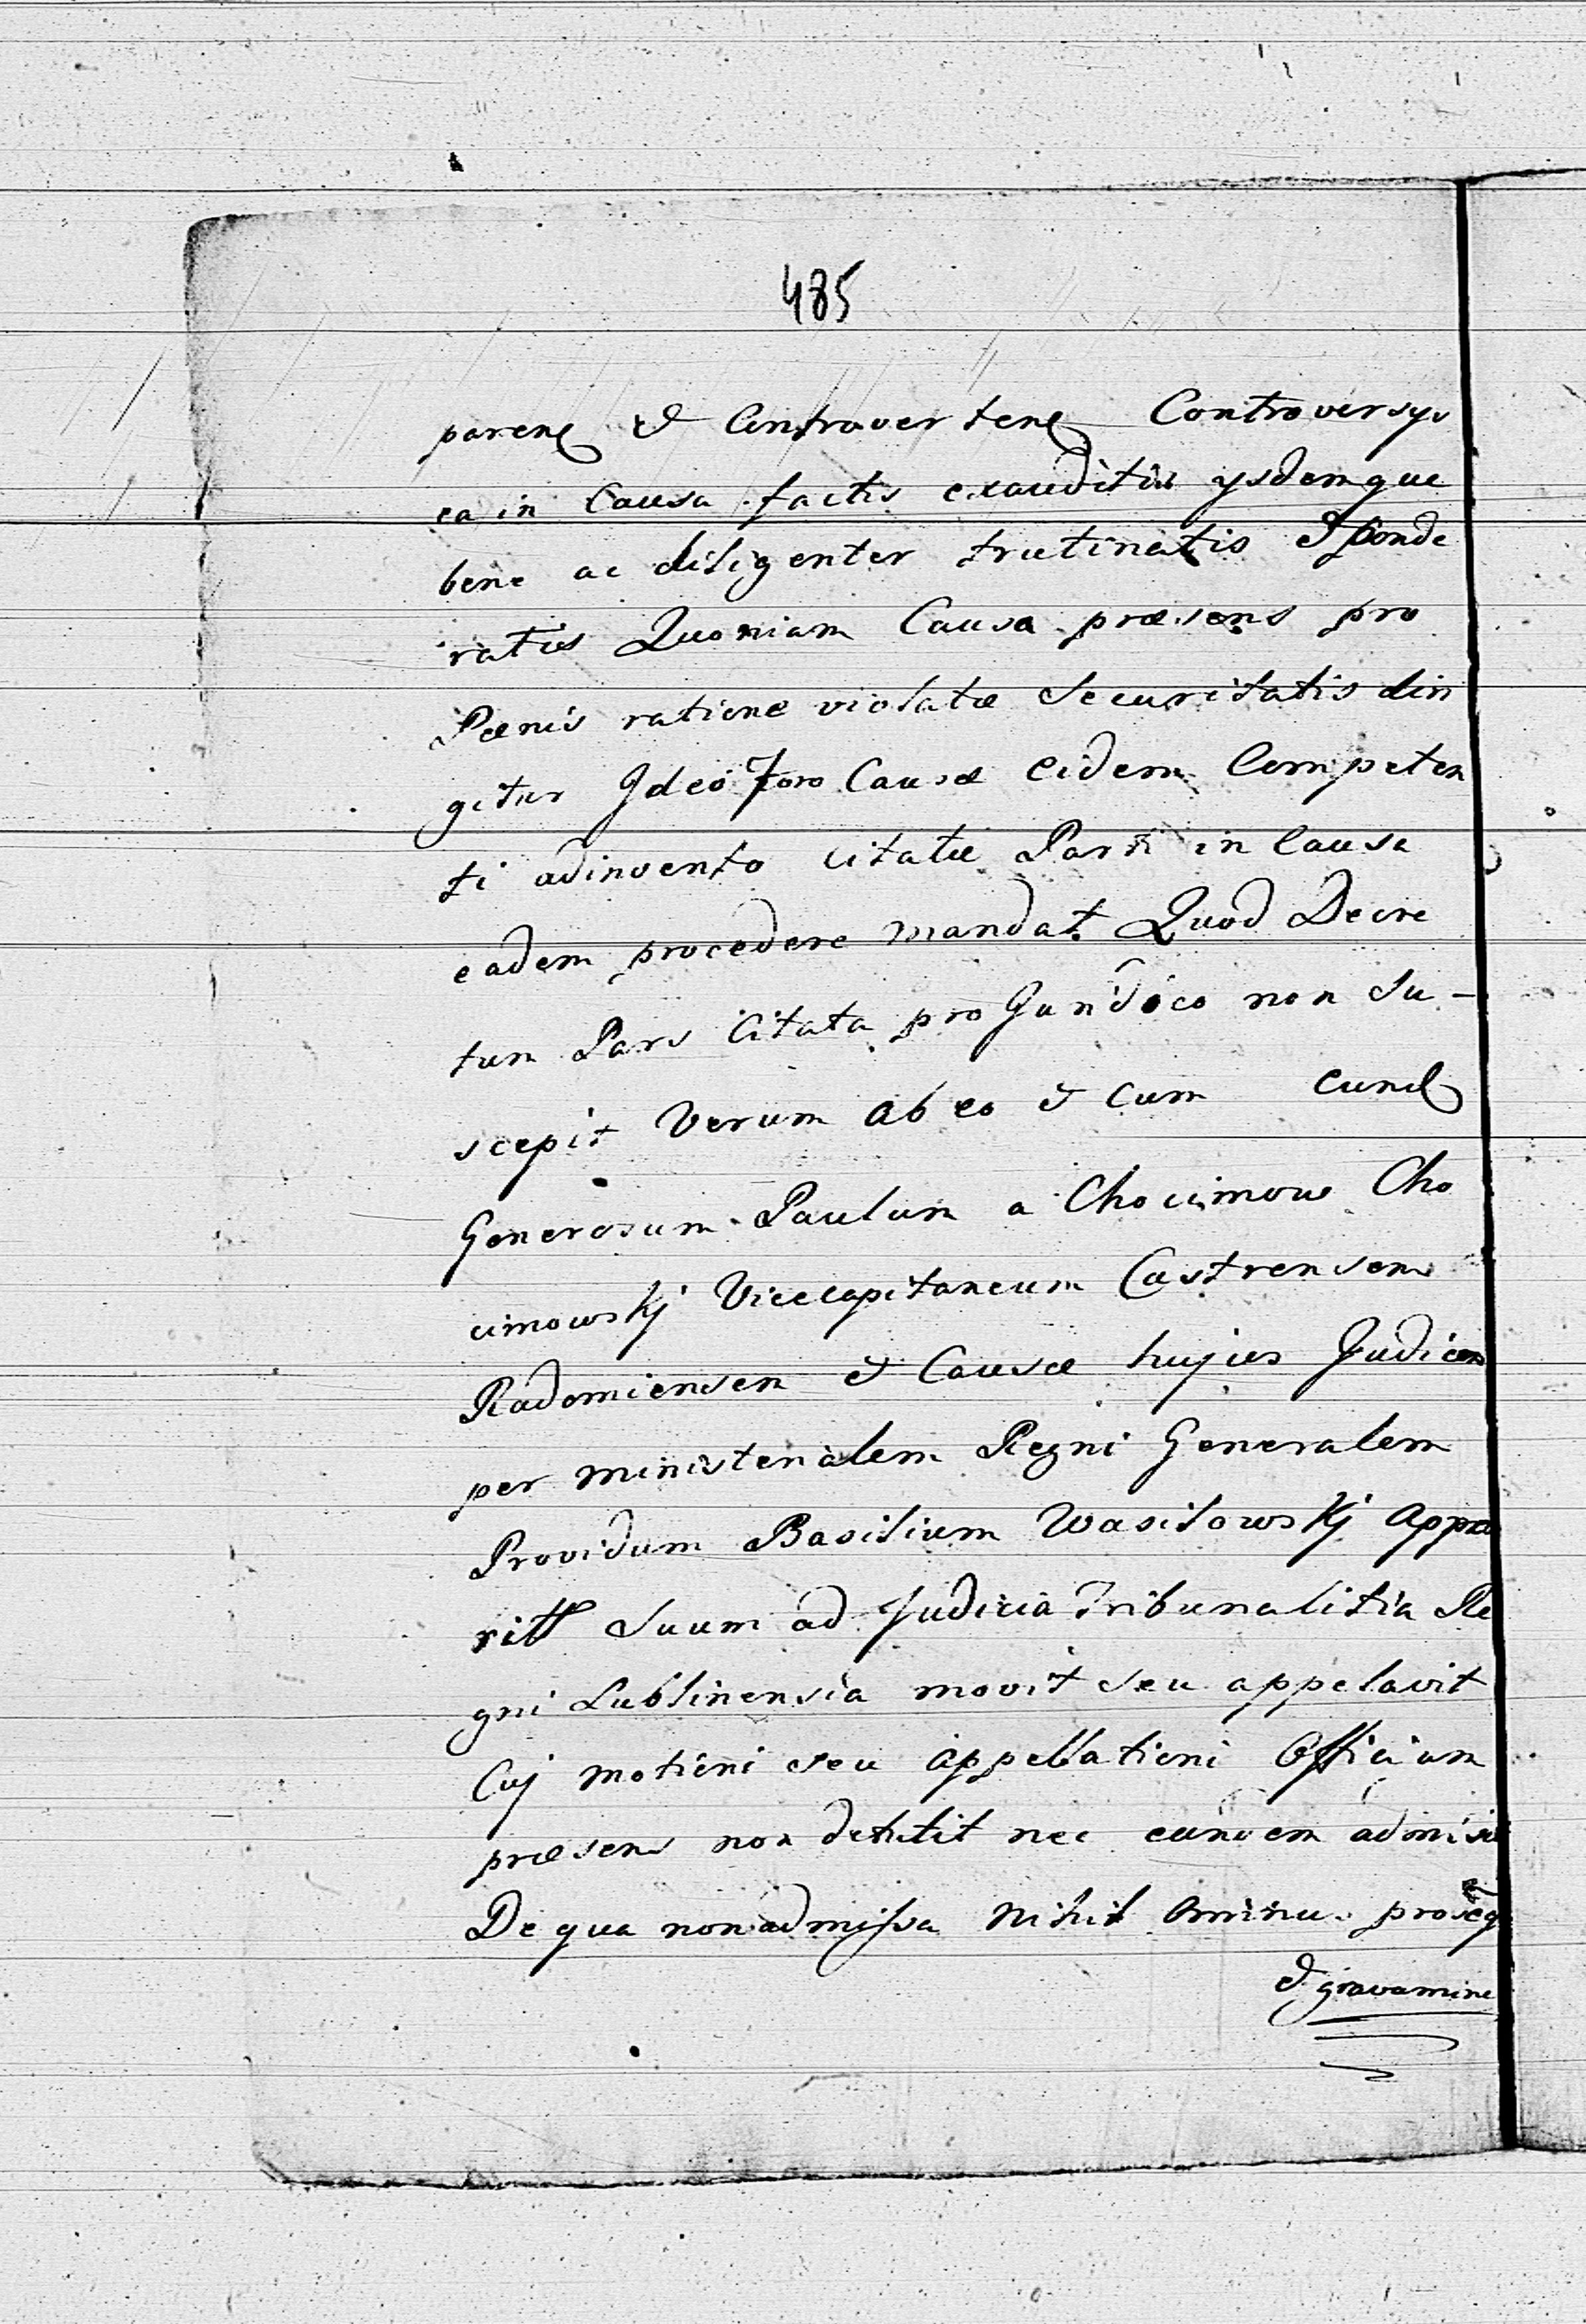 485
paren & Controverten Controversys
ea in Causa factis exauditis ysdemque
bene ac diligenter trutinatis & ponde
ratis Quoniam Causa præsens pro
Pænis ratione violatæ Securitatis diri
gitur Ideo Foro Causæ eidem Competen
ti adinvento citatæ Parti in Causa
eadem procedere mandat. Quod Decre
tum Pars Citata pro Juridico non Su-
scepit Verum ab eo & cum eund
Generosum Paulum a Chocimow Cho
cimowskj Vicecapitaneum Castrensem
Radomiensem & Causæ hujus Judicem
per ministerialem Regni Generalem
Providum Basilium Wasilowskj Appa
ritt Suum ad Judicia Tribunalitia Re
gni Lublinensia movit seu appelavit
Cuj motioni seu appellationi Officium
præsens non detulit nec eandem admisit
De qua non admissa nihil ominus proseq
& gravamine